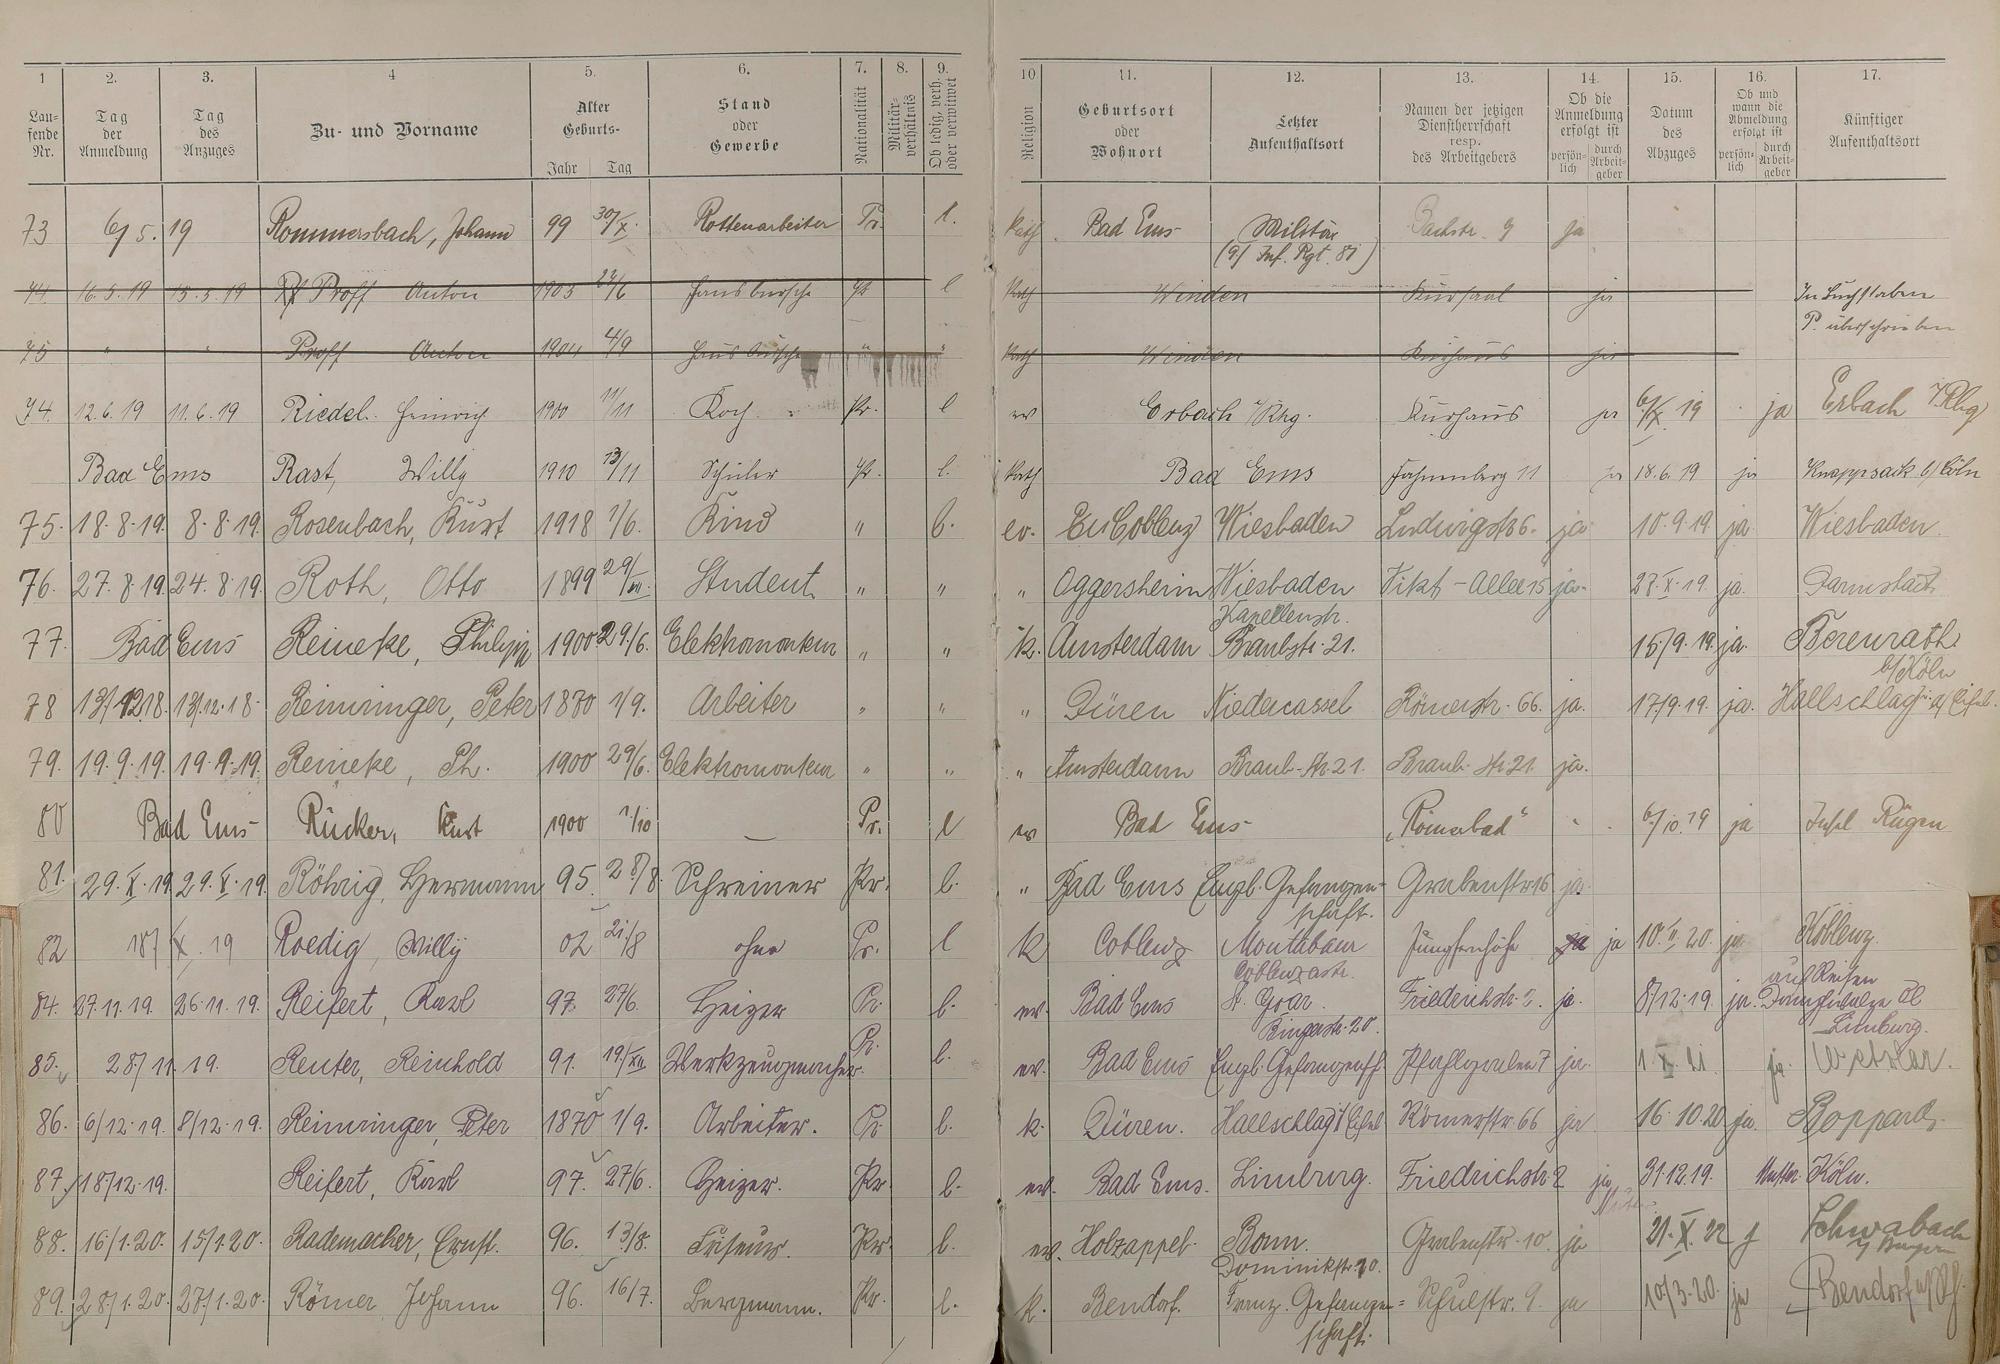 1 2. 3. 4 5. 6. 7. 8. 9. 10 11. 12. 13. 14. 15. 16. 17.
Lau-fende Nr. Tag der Anmeldung Tag des Anzuges Zu- und Vorname Alter Geburts- Jahr Tag Stand oder Gewerbe Nationalität Militär-verhältnis Ob ledig, verh. oder verwitwet Religion Geburtsort oder Wohnort Letzter Aufenthaltsort Namen der jetzigen Dienstherrschaft resp. des Arbeitgebers Ob die Anmeldung erfolgt ist persön-lich durch Arbeit-geber Datum des Abzuges Ob und wann die Abmeldung erfolgt ist persön-lich durch Arbeit-geber Künftiger Aufenthaltsort
73 6/5. 19 Rommersbach, Johann 99 30/X. Rottenarbeiter Pr. l. Kath. Bad Ems Militär Bachstr. 9 ja
(9/ Inf. Rgt. 81)
74. 16.5.19 15.5.19 Proff Anton 1903 Hausbursche Pr l Kath Winden Kursaal ja In Buchstaben
P. überschrieben
75 " " Proff Anton 1904 4/9 Hausbursche " " Kath Winden Kurhaus ja
74. 12.6.19 11.6.19 Riedel. Heinrich 1900 11/11 Koch Pr. l ev Erbach i/Rhg. Kurhaus ja 6/X. 19 ja Erbach i/Rhg
Bad Ems Rast, Willy 1910 13/11 Schüler Pr. l. Kath Bad Ems Fahnenberg 11 ja 18.6.19 ja Knappsack b/Cöln
75. 18.8.19. 8.8.19. Rosenbach, Kurt 1918 1/6. Kind " l. ev. Coblenz Wiesbaden Ludwigstr 6. ja 10.9.19. ja. Wiesbaden.
76. 27.8.19. 24.8.19. Roth, Otto 1899 Student " " " Oggersheim Wiesbaden Vikt-Allee 15 ja. X.19. ja. Darmstadt
Kapellenstr.
77. Bad Ems Reineke, Philipp 1900 29/6. Elektromonteur " " k. Amsterdam Braubstr. 21. 15/9.19. ja. Berenrath
b/Köln
78 13/12 18. 13/12.18. Reininger, Peter 1870 1/9. Arbeiter " " " Düren Niedercassel Römerstr. 66. ja. 17/9.19. ja. Hallschlag i. d/ Eifel.
79. 19.9.19. 19.9.19. Reineke, Ph. 1900 29/6. Elektromonteur " " " Amsterdam Braub-str. 21. Braub-str 21. ja.
80 Bad Ems Rücker, Kurt 1900 1/10 — Pr. l ev Bad Ems "Römerbad" 6/10.19 ja Insel Rügen
81. 29.X.19 29.X.19. Röhrig, Hermann 95. 28/8. Schreiner Pr. l. " Bad Ems Engl. Gefangen- Grabenstr 16 ja.
schaft.
82 18/X. 19 Roedig, Willy 02 21/8 ohne Pr. l k Coblenz Montabaur Jungfernhöhe ja ja 10.II.20. ja Koblenz.
Coblenzastr. auf Reisen
84. 27.11.19. 26.11.19. Reifert, Karl 97. 27/6. Heizer Pr. l. ev. Bad Ems St. Goar. Friedrichstr. 2. ja. 8/12.19. ja. Dampfwalze
Bingerstr. 20. Limburg.
85. 28/11.19. Reuter, Reinhold 91. 19/XII Werkzeugmacher Pr. l. ev. Bad Ems Engl. Gefangensch. Pfahlgraben 7 ja. 1.X.21. ja. Wetzlar.
86. 6/12.19. 8/12.19. Reininger, Peter 1870 1/9. Arbeiter. Pr. l. k. Düren. Hallschlag i Eifel Römerstr. 66 ja 16.10.20 ja. Boppard.
87. 18/12.19. Reifert, Karl 97. 27/6. Heizer. Pr. l. ev. Bad Ems. Limburg. Friedrichstr. 2 ja. 31.12.19. Mutter. Köln.
Mutter
88. 16/1.20. 15/1.20. Rademacher, Ernst. 96. 13/8. Friseur. Pr. l. ev. Holzappel. Bonn. Grabenstr. 10. ja 21.X.22 j Schwabach
Dominikstr. i/ Bayern
89. 28/1.20. 27/1.20. Römer Johann 96. 16/7. Bergmann. Pr. l. k. Bendorf. Franz. Gefangen= Schulstr. 9. ja 10/3.20. ja Bendorf a/Rh.
schaft.